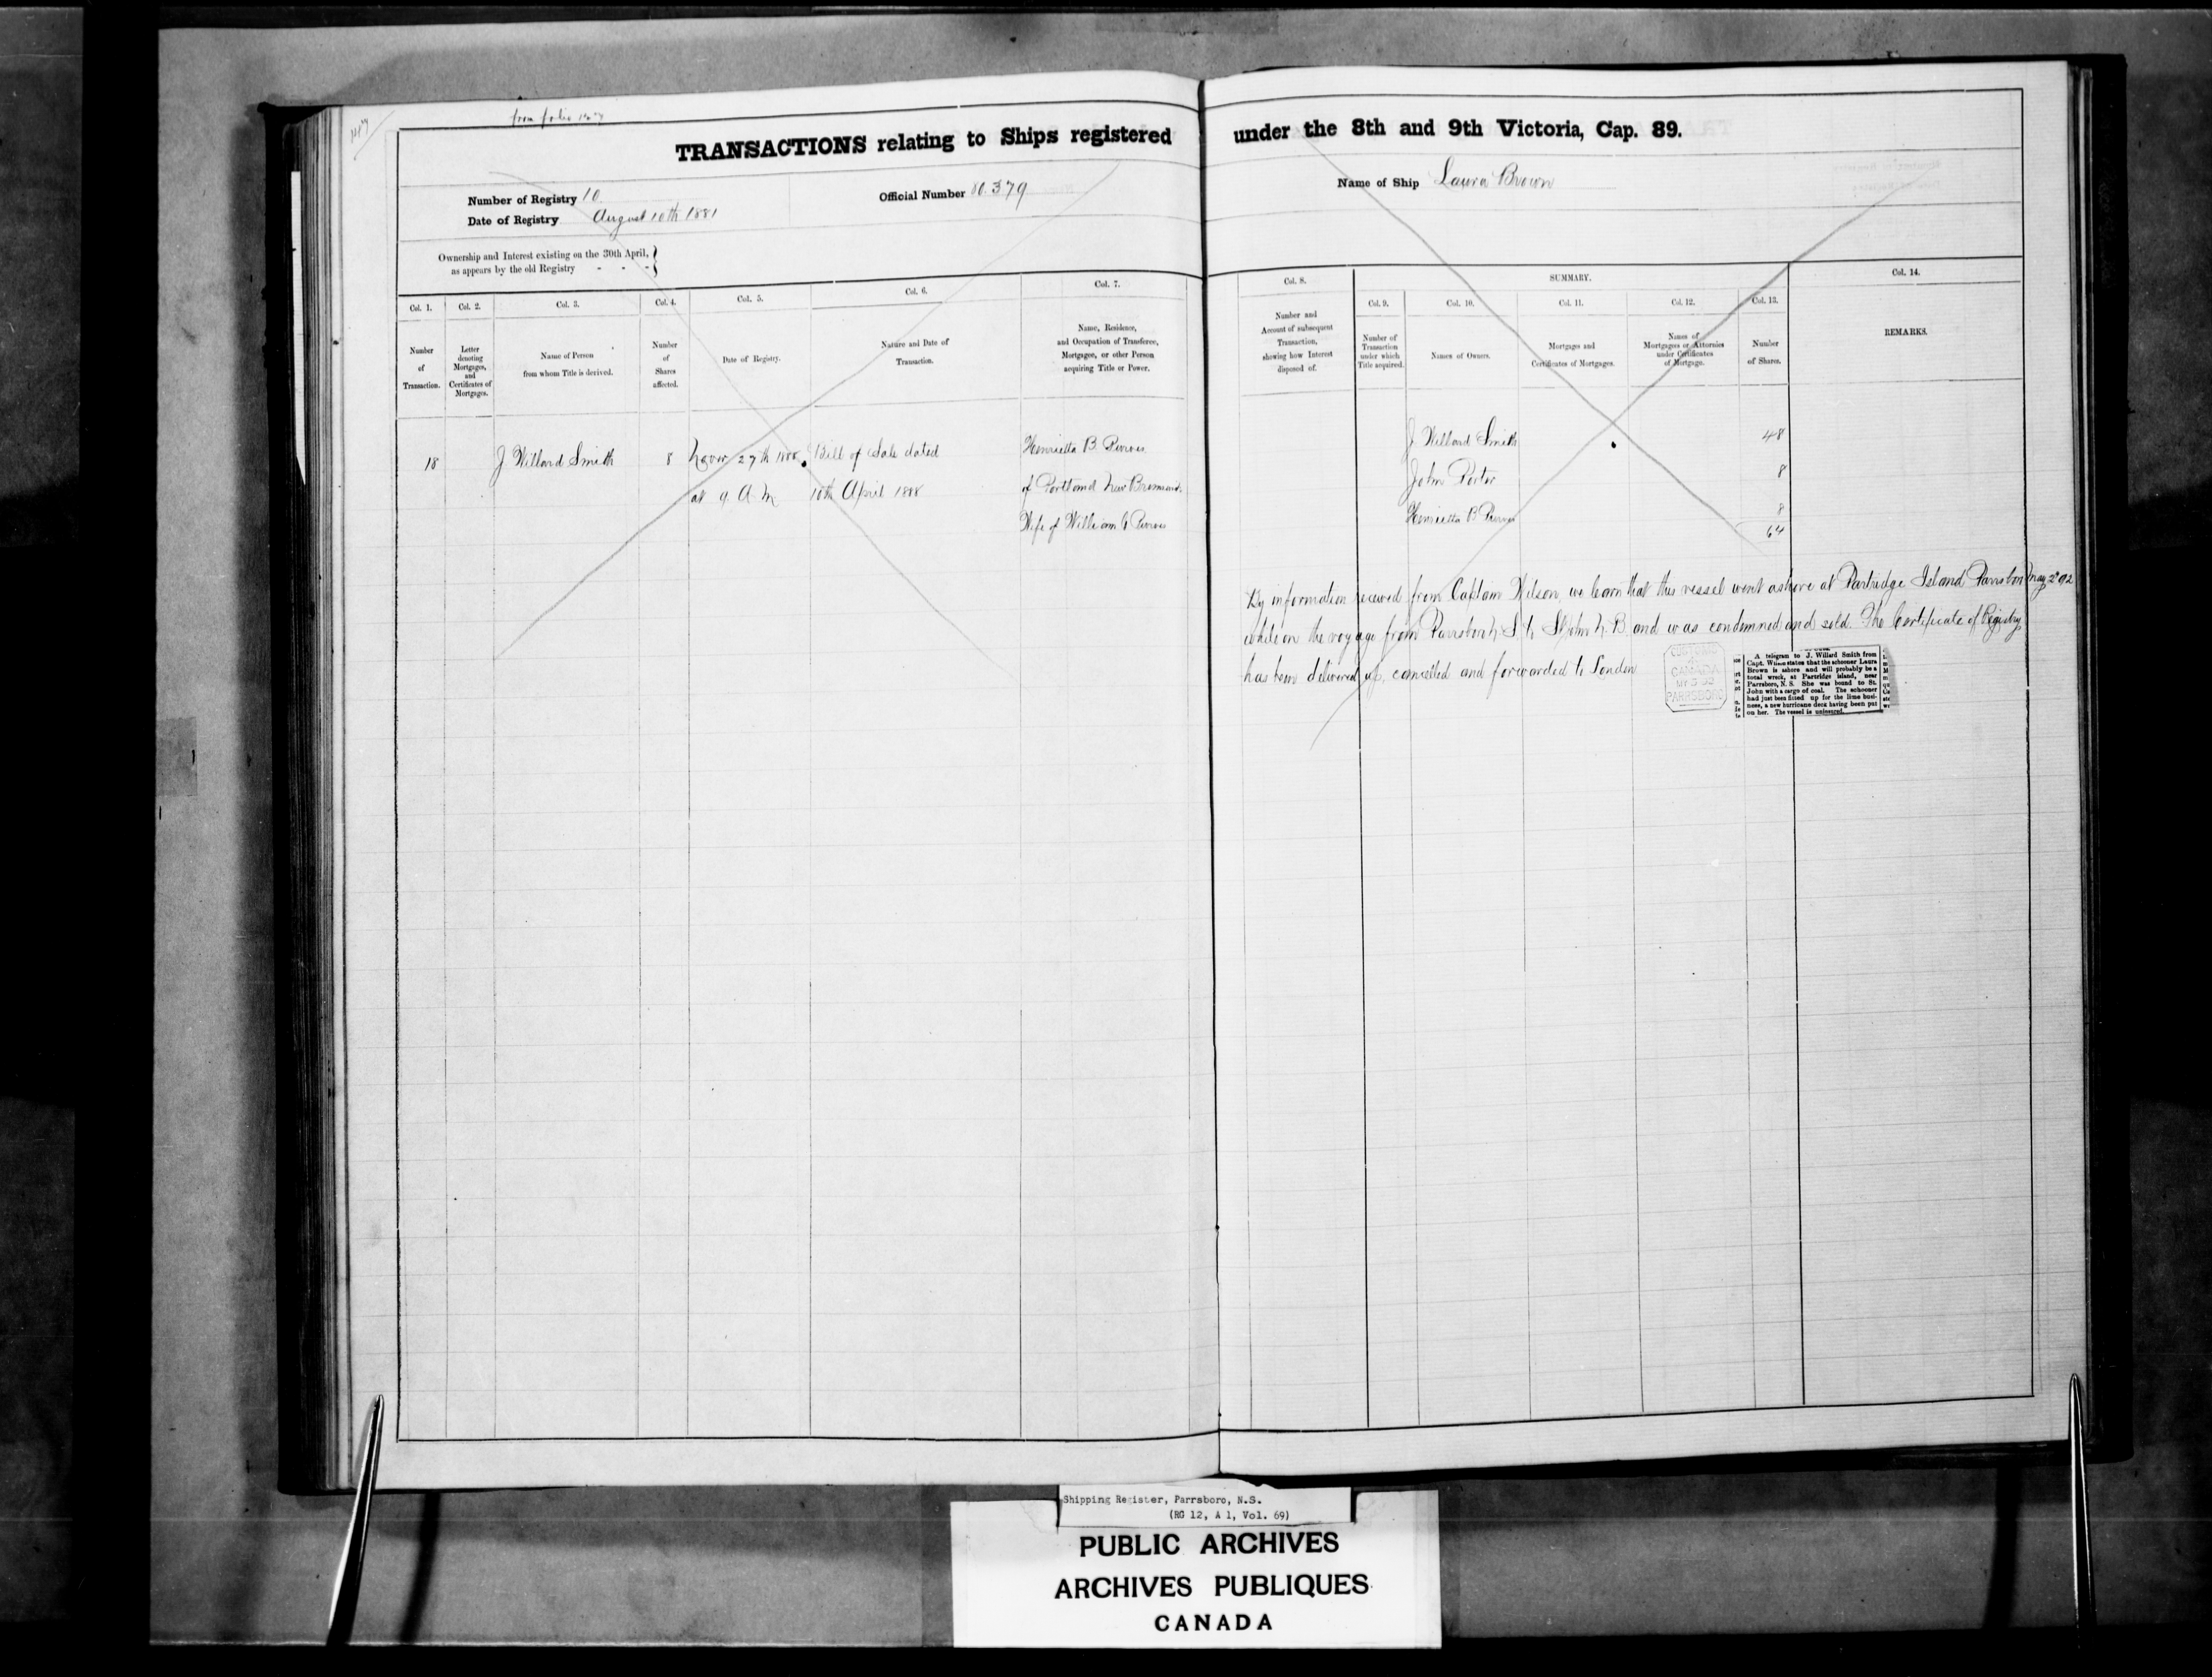 from folio
TRANSACTIONS relating to Ships registered under the 8th and 9th Victoria, Cap. 89.
Number of Registry 10
Official Number 80.379
Name of Ship Laura Brown
Date of Registry August 10th 1881
Ownership and Interest existing on the 30th April,
as appears by the old Registry - - -
Col. 1.
Number
of
Transaction.
Col. 2.
Letter
denoting
Mortgages,
and
Certificates of
Mortgages.
Col. 3.
Name of Person
from whom Title is derived.
Col. 4.
Number
of
Shares
affected.
Col. 5.
Date of Registry.
Col. 6.
Nature and Date of
Transaction.
Col. 7.
Name, Residence,
and Occupation of Transferee,
Mortgagee, or other Person
acquiring Title or Power.
Col. 8.
Number and
Account of subsequent
Transaction,
showing how Interest
disposed of.
SUMMARY.
Col. 9.
Number of
Transaction
under which
Title acquired.
Col. 10.
Names of Owners.
Col. 11.
Mortgages and
Certificates of Mortgages.
Col. 12.
Names of
Mortgagees or Attornies
under Certificates
of Mortgage.
Col. 13.
Number
of Shares.
Col. 14.
REMARKS.
18
J Willard Smith
8
Novr 27th 1888
at 9 A.M
Bill of Sale dated
10th April 1888
Henrietta B. Purves
of Portland New Brunswick
Wife of William G Purves
J Willard Smith 48
John Porter 8
Henrietta B Purves 8
64
By information received from Captain Wilson, we learn that this vessel went ashore at Partridge Island Parrsboro May 2nd 92
while on the voyage from Parrsboro N.S. to St John N.B. and was condemned and sold. The Certificate of Registry
has been delivered up, cancelled and forwarded to London
CUSTOMS
CANADA
PARRSBORO
A telegram to J. Willard Smith from
Capt. Wilson states that the schooner Laura
Brown is ashore and will probably be a
total wreck, at Partridge island, near
Parrsboro, N. S. She was bound to St.
John with a cargo of coal. The schooner
had just been fitted up for the lime busi-
ness, a new hurricane deck having been put
on her. The vessel is uninsured.
Shipping Register, Parrsboro, N.S.
(RG 12, A 1, Vol. 69)
PUBLIC ARCHIVES
ARCHIVES PUBLIQUES
CANADA